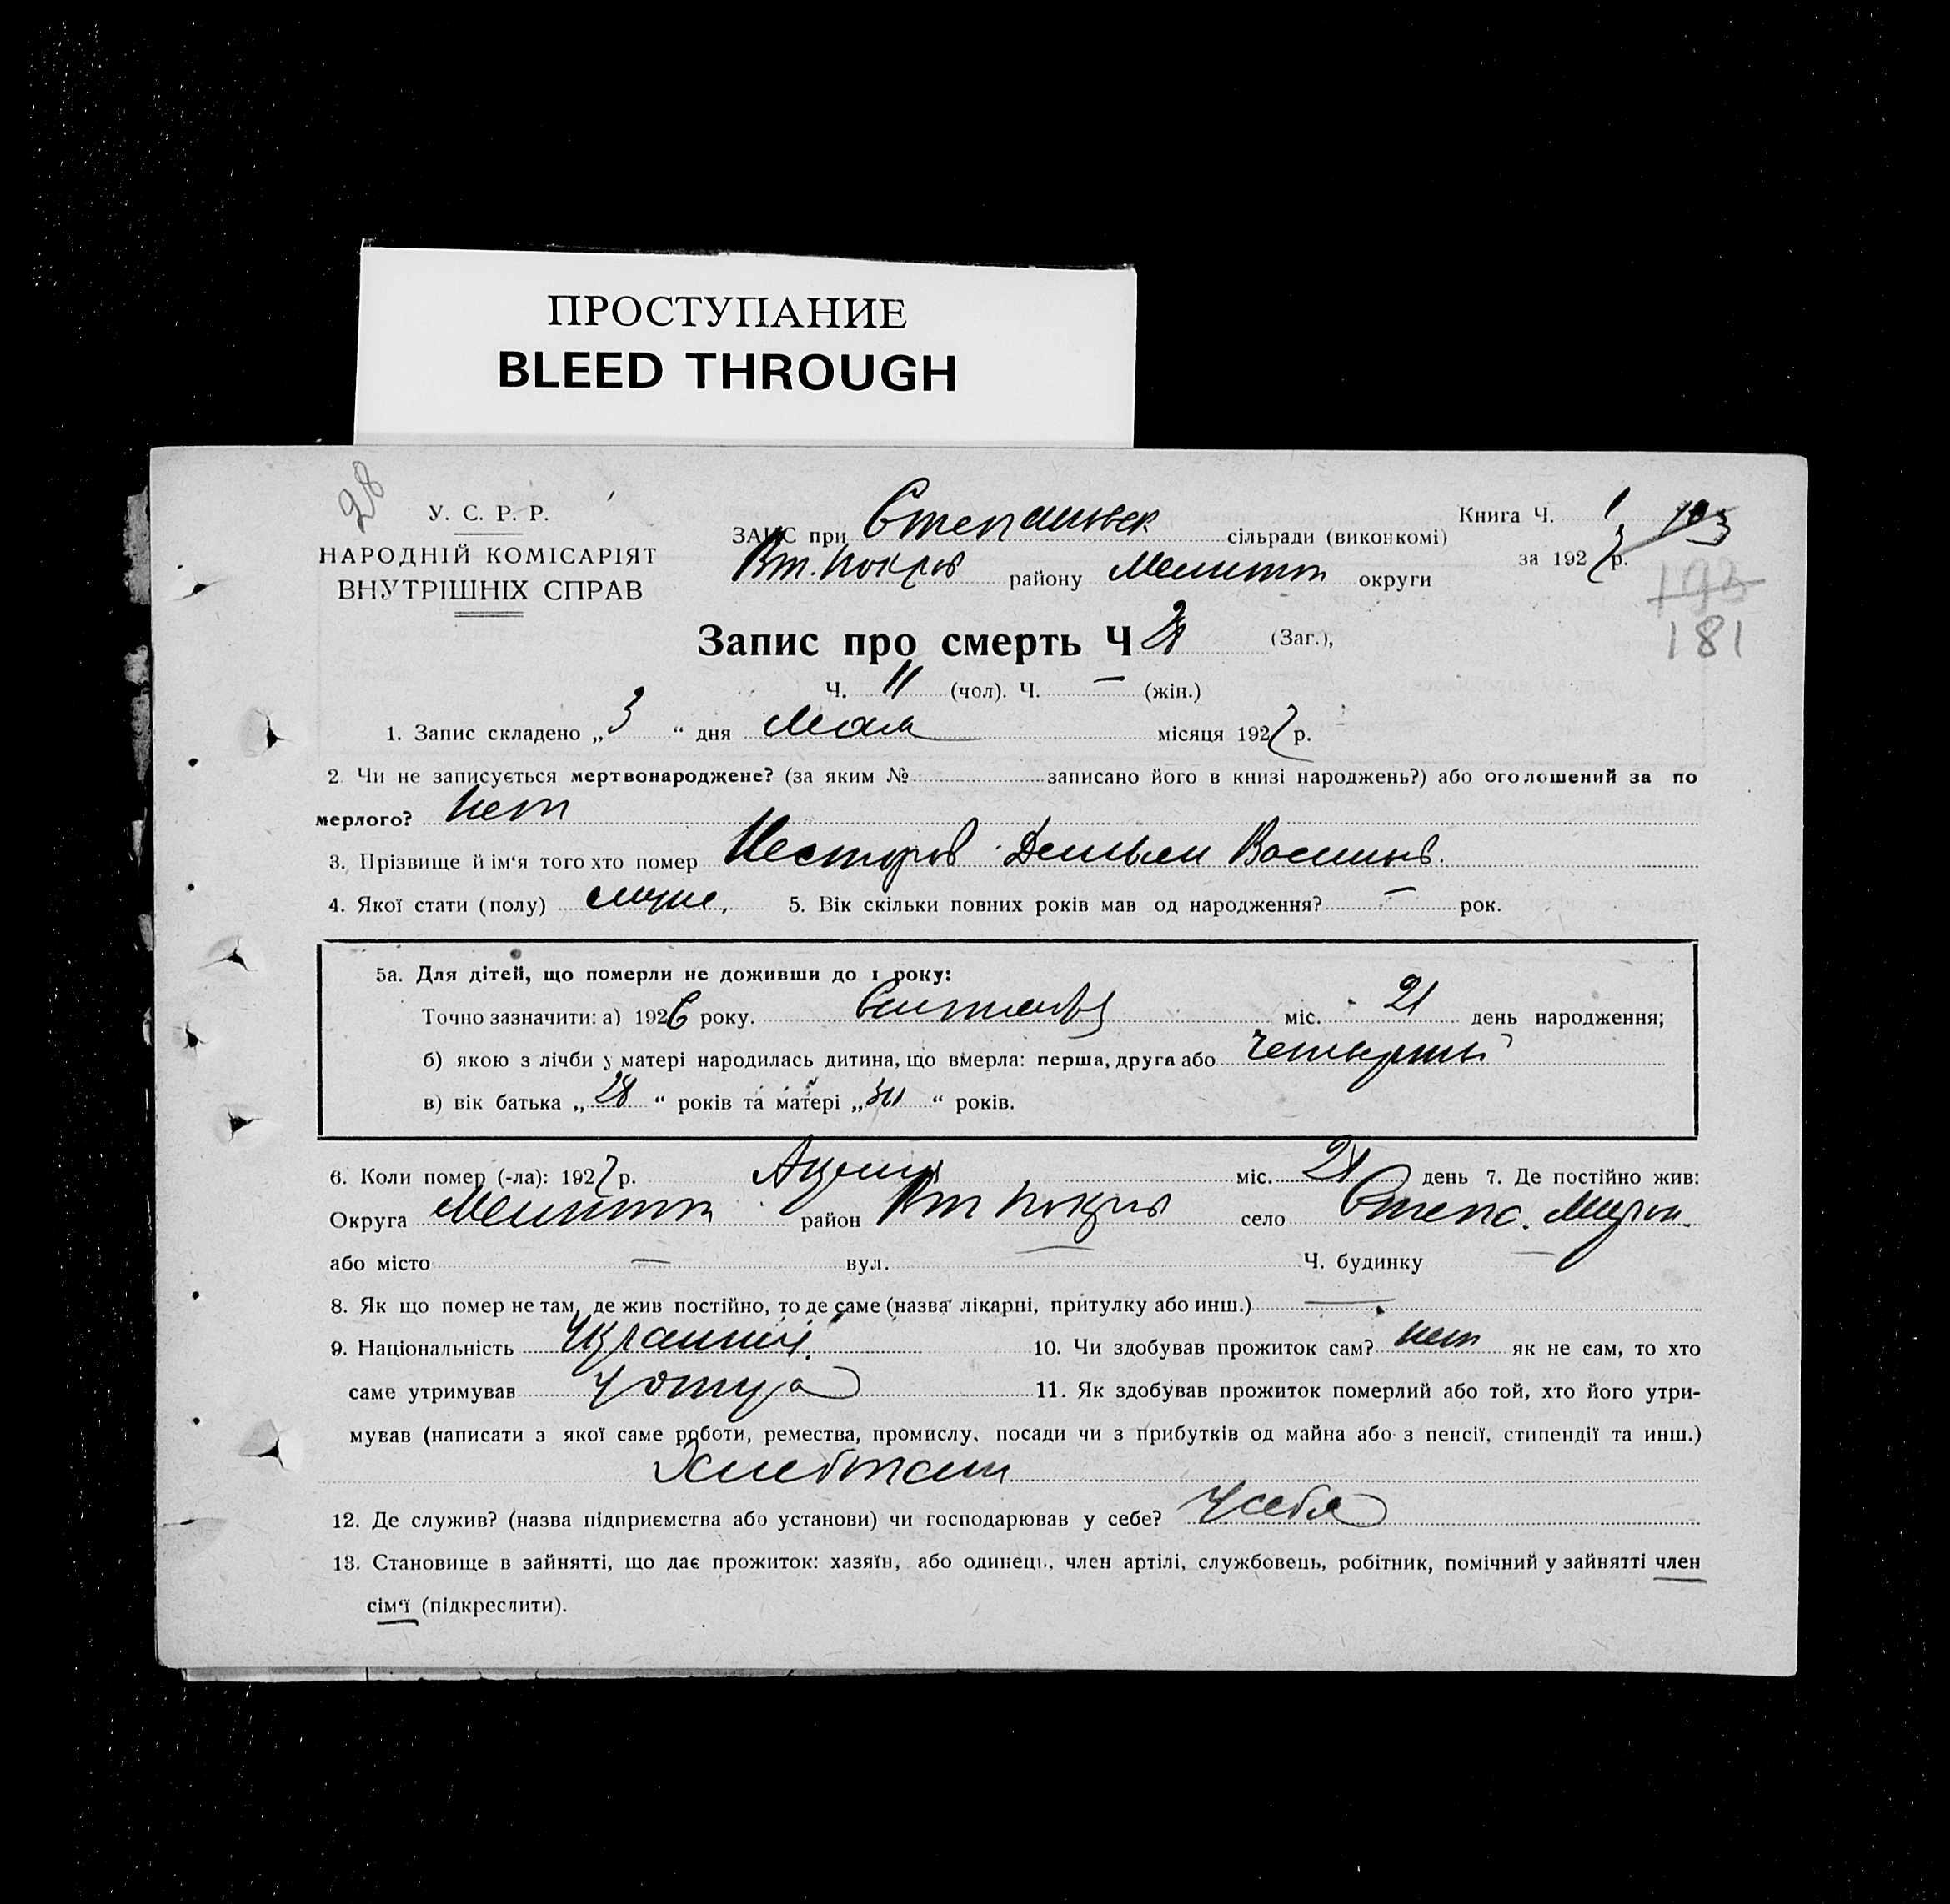 ПРОСТУПАНИЕ
BLEED THROUGH
28
У. С. Р. Р.
НАРОДНІЙ КОМІСАРІЯТ
ВНУТРІШНІХ СПРАВ
ЗАПС при Степановск сільради (виконкомі)
Вт. Покров району Мелитоп округи
Книга Ч. 1
за 1927 р.
103
193
181
Запис про смерть Ч 21 (Заг.),
Ч. 11 (чол). Ч. — (жін.)
1. Запис складено „3“ дня Мая місяця 1927 р.
2. Чи не записується мертвонароджене? (за яким № записано його в книзі народжень?) або оголошений за по
мерлого? нет
3. Прізвище й ім‘я того хто помер Несторов Демьян Васильев.
4. Якої стати (полу) муж. 5. Вік скільки повних років мав од народження? — рок.
5а. Для дітей, що померли не доживши до 1 року:
Точно зазначити: а) 1926 року. Сентябр міс. 21 день народження;
б) якою з лічби у матері народилась дитина, що вмерла: перша, друга або Четвертый
в) вік батька „28“ років та матері „“ років.
6. Коли помер (-ла): 1927 р. Апреля міс. 21 день 7. Де постійно жив:
Округа Мелитоп район Вт Покров село Степа.
або місто — вул. — Ч. будинку —
8. Як що помер не там, де жив постійно, то де саме (назва лікарні, притулку або инш.) —
9. Національність Украинец 10. Чи здобував прожиток сам? нет як не сам, то хто
саме утримував У отца 11. Як здобував прожиток померлий або той, хто його утри-
мував (написати з якої саме роботи, ремества, промислу, посади чи з прибутків од майна або з пенсії, стипендії та инш.)
Хлебопаш
12. Де служив? (назва підприємства або установи) чи господарював у себе? У себя
13. Становище в зайнятті, що дає прожиток: хазяїн, або одинець, член артілі, службовець, робітник, помічний у зайнятті член
сім‘ї (підкреслити).